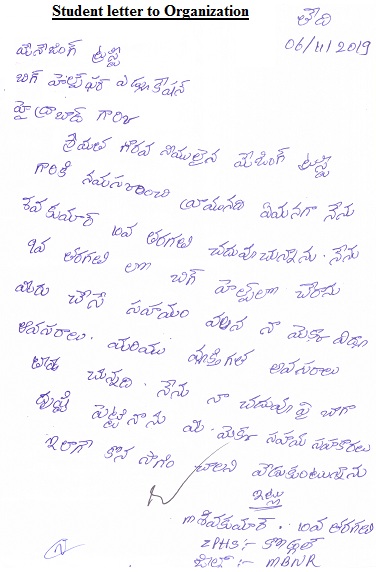 Student letter to Organization
తేది
06/11/2019
మేనేజింగ్ ట్రస్టీ
బిగ్ హెల్ప్ ఫర్ ఎడ్యుకేషన్
హైద్రాబాద్ గారికి
శ్రీయుత గౌరవ నీయులైన మేజింగ్ ట్రస్టీ
గారికి నమస్కరించి వ్రాయునది ఏమనగా నేను
శివకుమార్ 10వ తరగతి చదువు చున్నాను. నేను
9వ తరగతి లో బిగ్ హెల్ప్ లో చేరాను
మీరు చేసే సహాయం వలన నా యొక్క విద్యా
అవసరాలు. మరియు వ్యక్తిగత అవసరాలు
చున్నవి. నేను నా చదువు పై బాగా
దృష్టి పెట్టినాను మీ యొక్క సహాయ సహకారలు
ఇలాగే కొన సాగాలని వేడుకుంటున్నాను
ఇట్లు
m శివకుమార్. 10వ తరగతి
ZPHS:-
జిల్లా:- MBNR